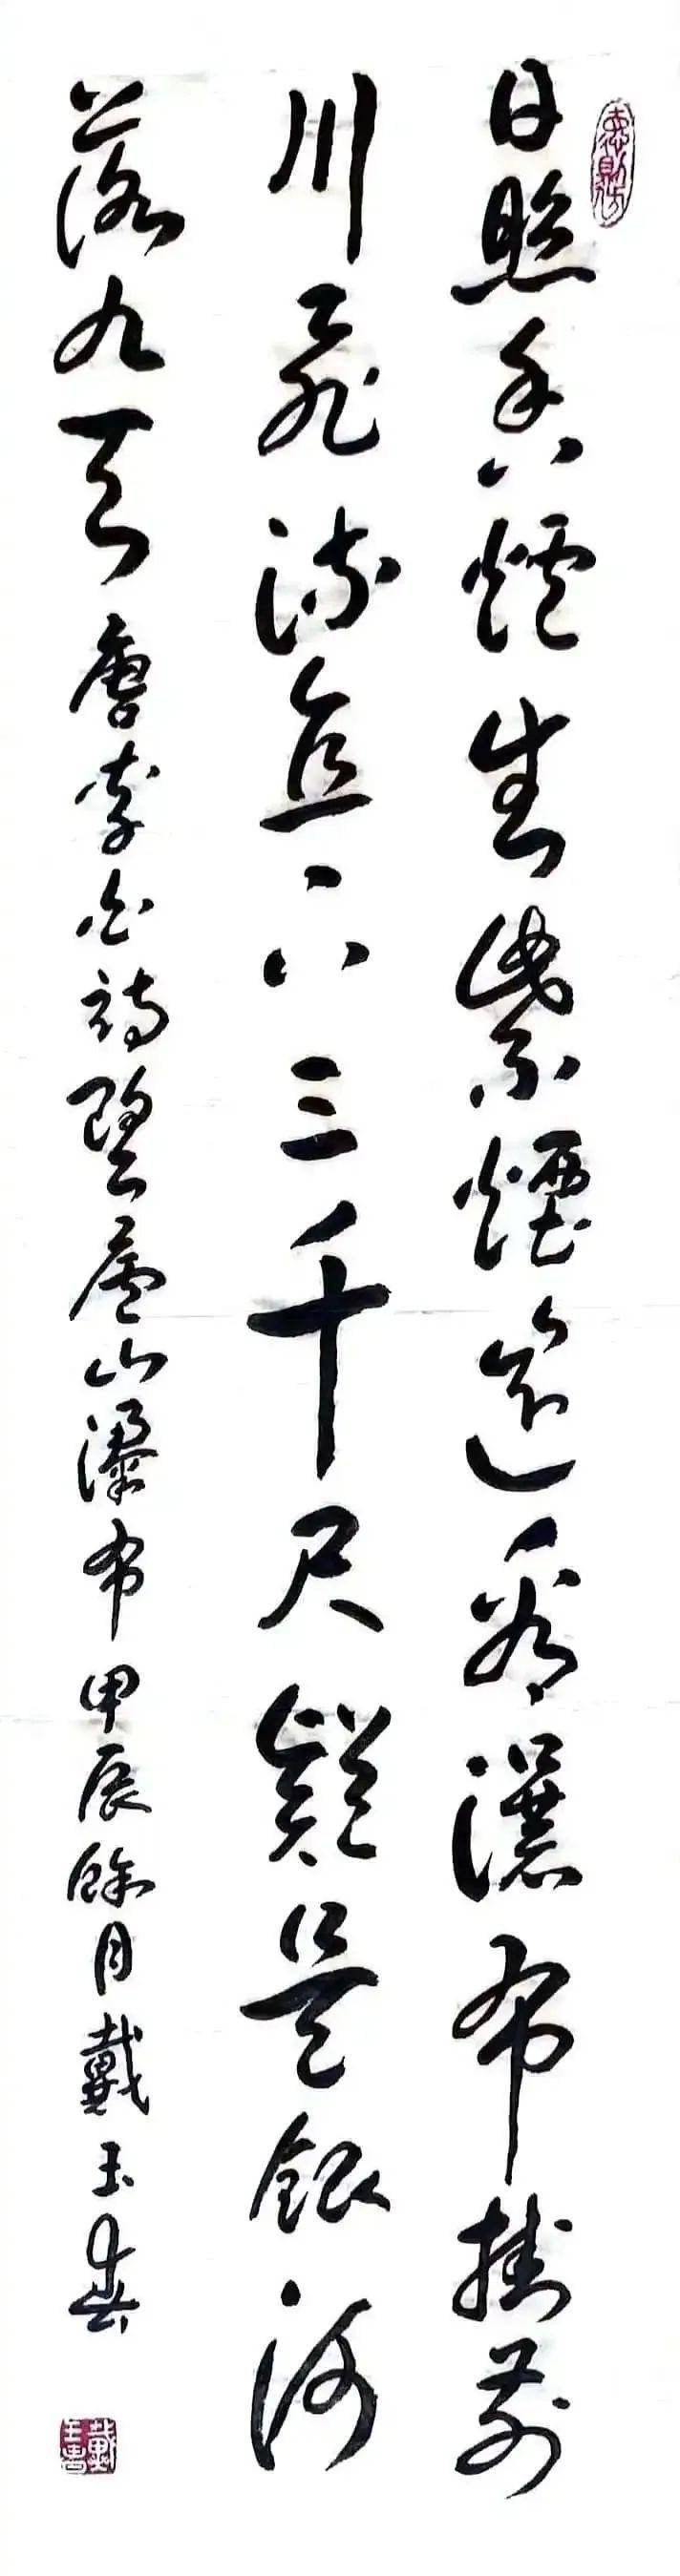 日照香爐生紫煙遙看瀑布掛前
川飛流直下三千尺疑是銀河
落九天 唐李白詩望廬山瀑布 甲辰餘月戴玉春